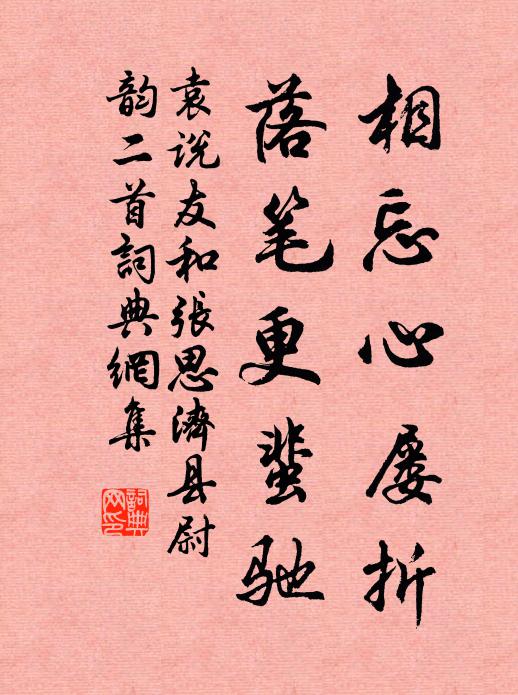 相忘心屡折
落笔更蜚驰
袁说友和張思濟县尉
韵二首詞典網集
詞典
网印